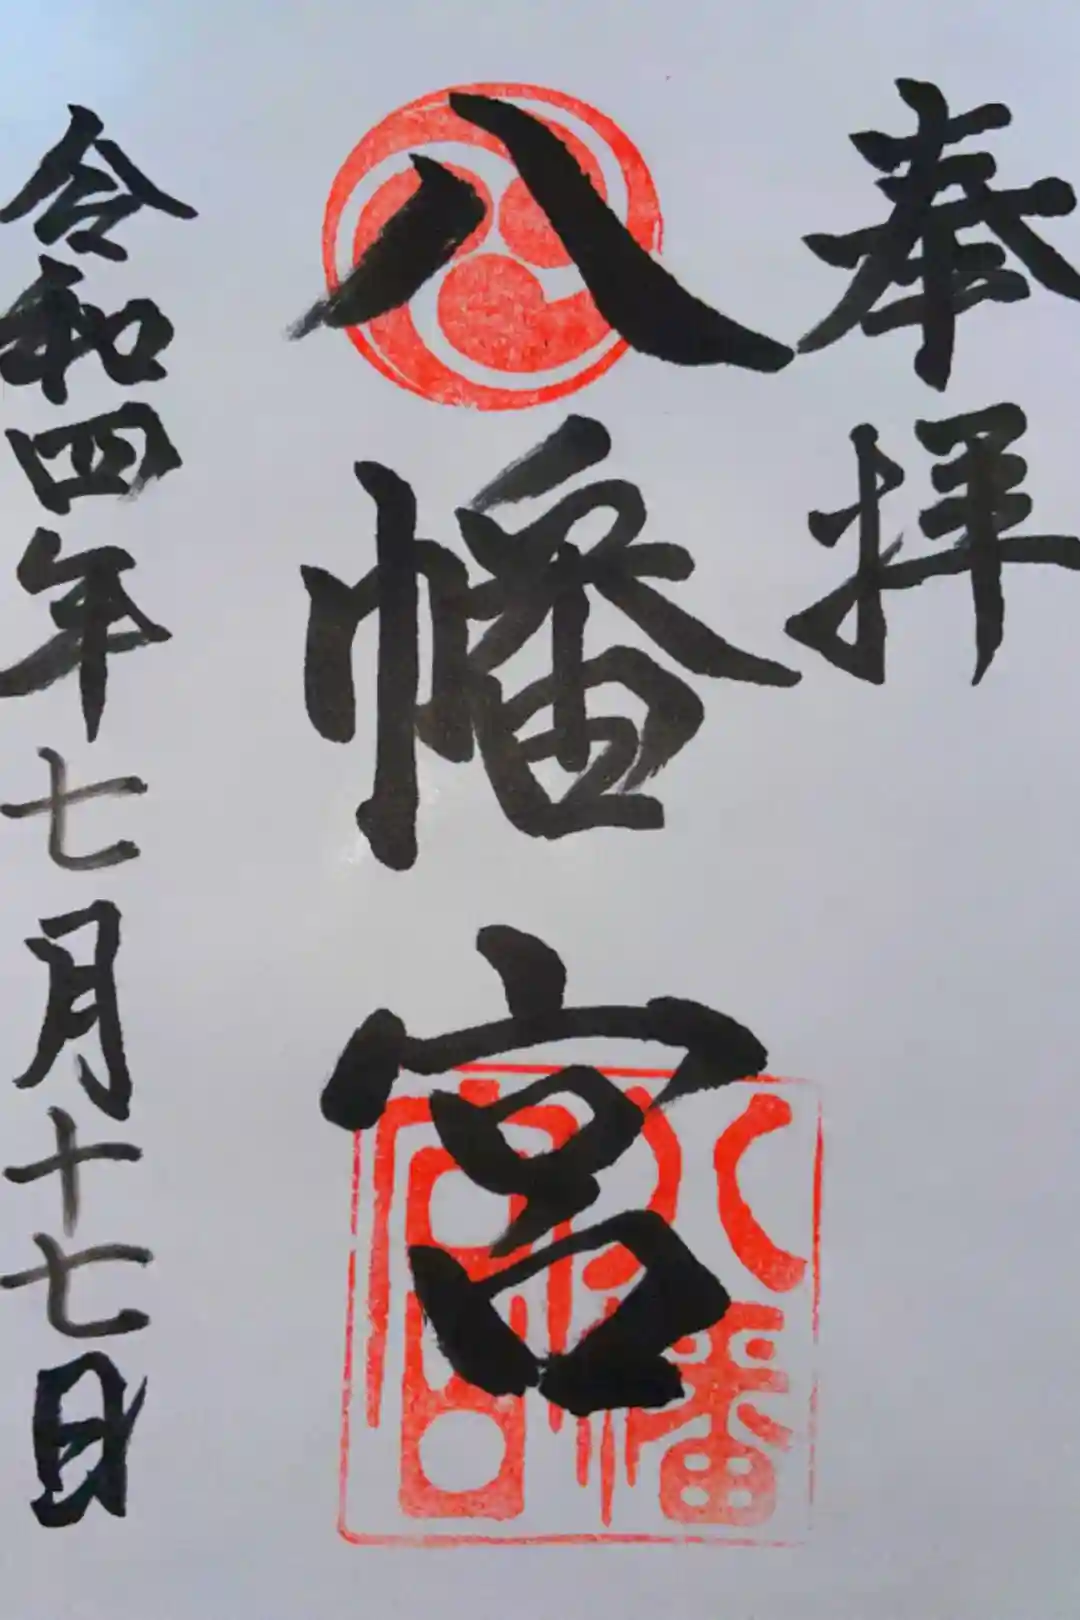 奉拝
八幡宮
令和四年七月十七日